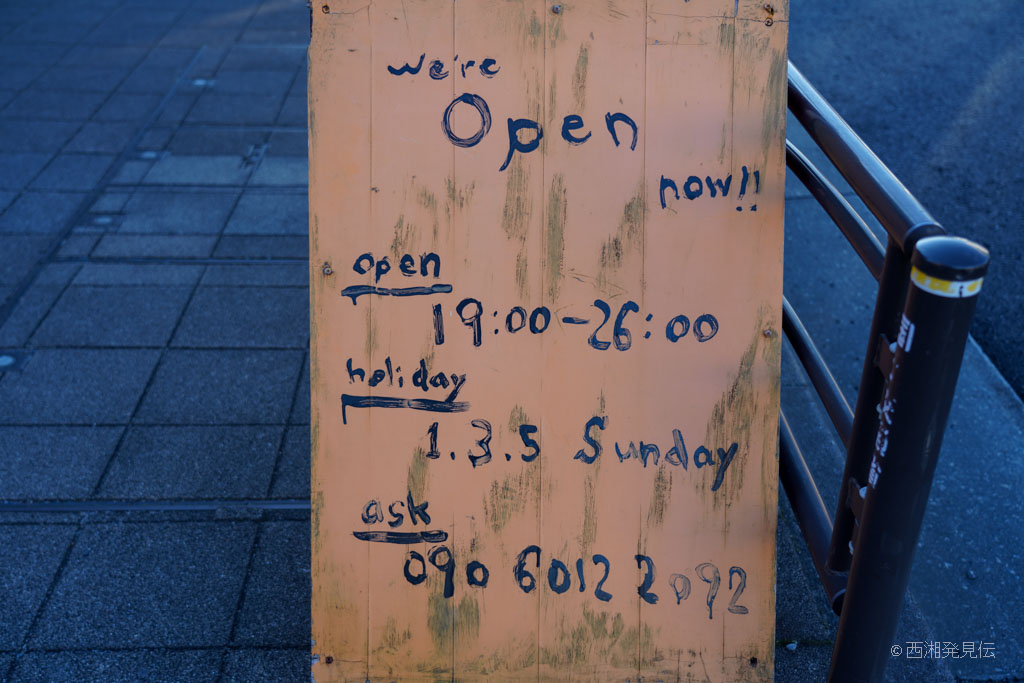 we're
Open
now!!
open
19:00-26:00
holiday
1.3.5 Sunday
ask
090 6012 2092
© 西湘発見伝